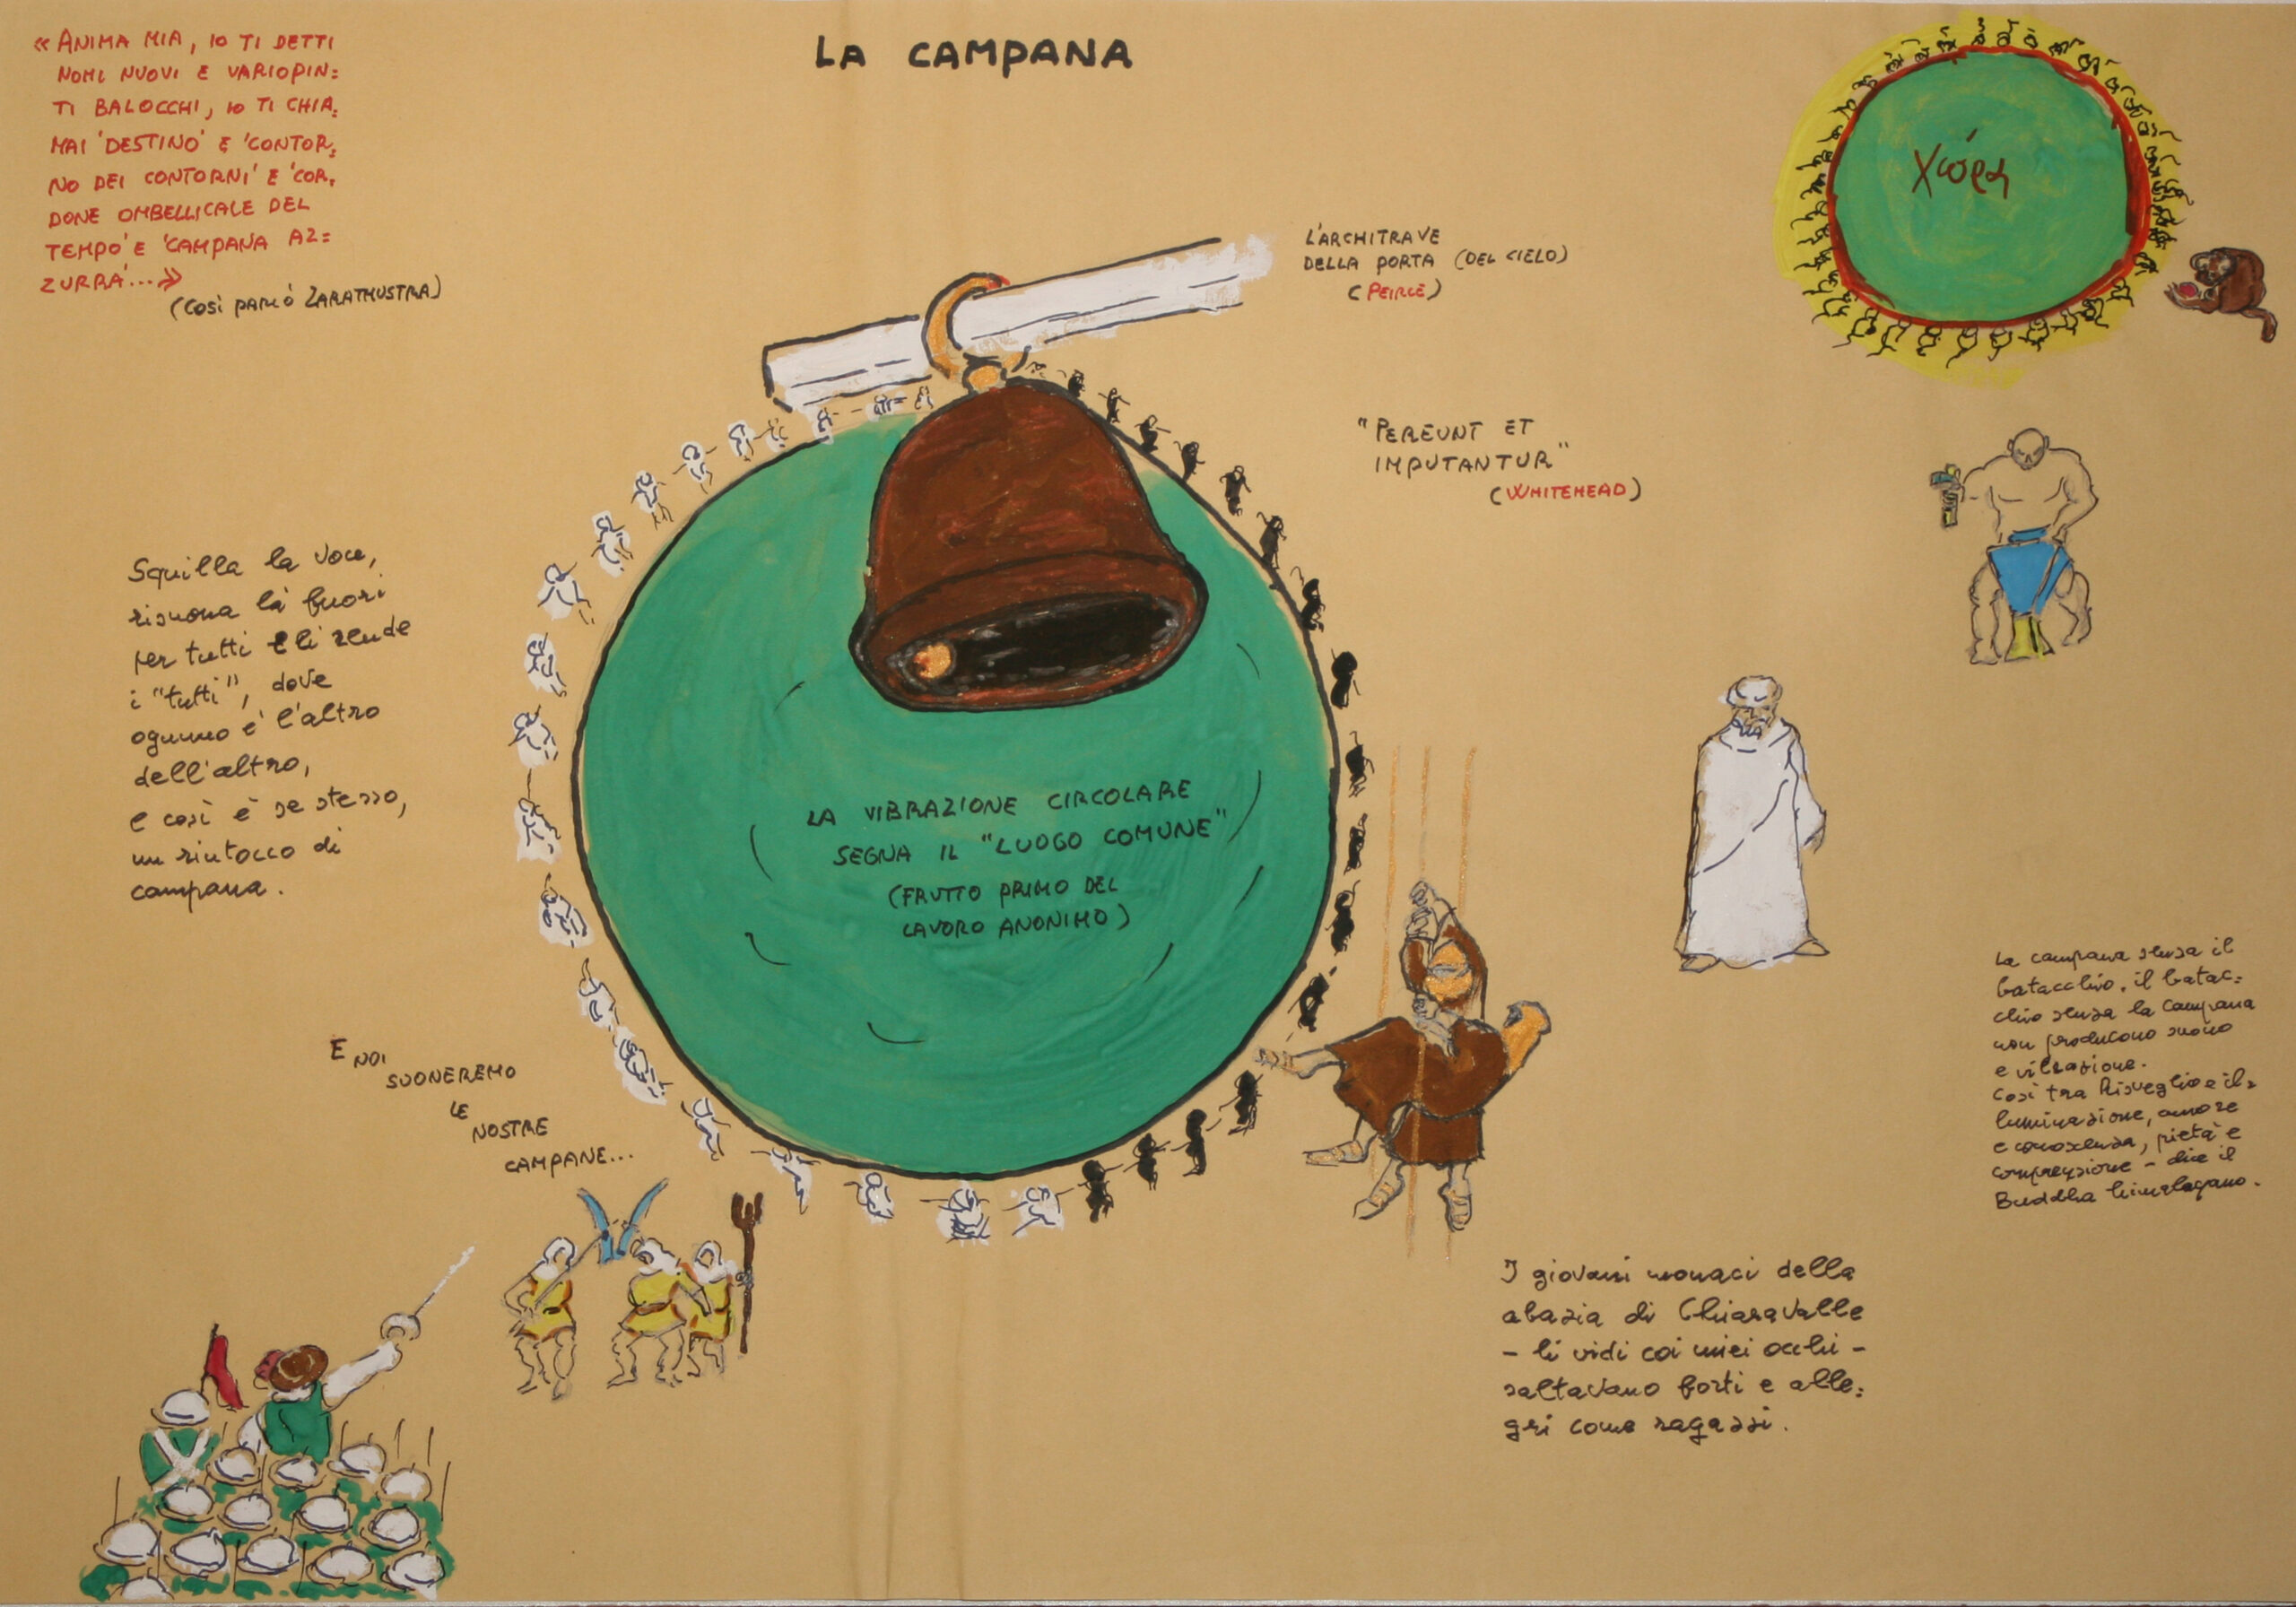 LA CAMPANA
« ANIMA MIA, IO TI DETTI
NOMI NUOVI E VARIOPIN=
TI BALOCCHI, IO TI CHIA=
MAI 'DESTINO' E 'CONTOR=
NO DEI CONTORNI' E 'COR=
DONE OMBELLICALE DEL
TEMPO' E 'CAMPANA AZ=
ZURRA'...»
(COSÌ PARLÒ ZARATHUSTRA)
Χώρα
L'ARCHITRAVE
DELLA PORTA (DEL CIELO)
(PEIRCE)
"PEREUNT ET
IMPUTANTUR"
(WHITEHEAD)
Squilla la voce,
risuona là fuori
per tutti e li rende
i "tutti", dove
ognuno è l'altro
dell'altro,
e così è se stesso,
un rintocco di
campana.
LA VIBRAZIONE CIRCOLARE
SEGNA IL "LUOGO COMUNE"
(FRUTTO PRIMO DEL
LAVORO ANONIMO)
La campana senza il
batacchio, il batac=
chio senza la campana
non producono suono
e vibrazione.
Così tra Risveglio e il=
luminazione, amore
e conoscenza, pietà e
comprensione - dice il
Buddha himalayano.
E NOI
SUONEREMO
LE
NOSTRE
CAMPANE...
I giovani monaci della
abazia di Chiaravalle
- li vidi coi miei occhi -
saltavano forti e alle=
gri come ragazzi.